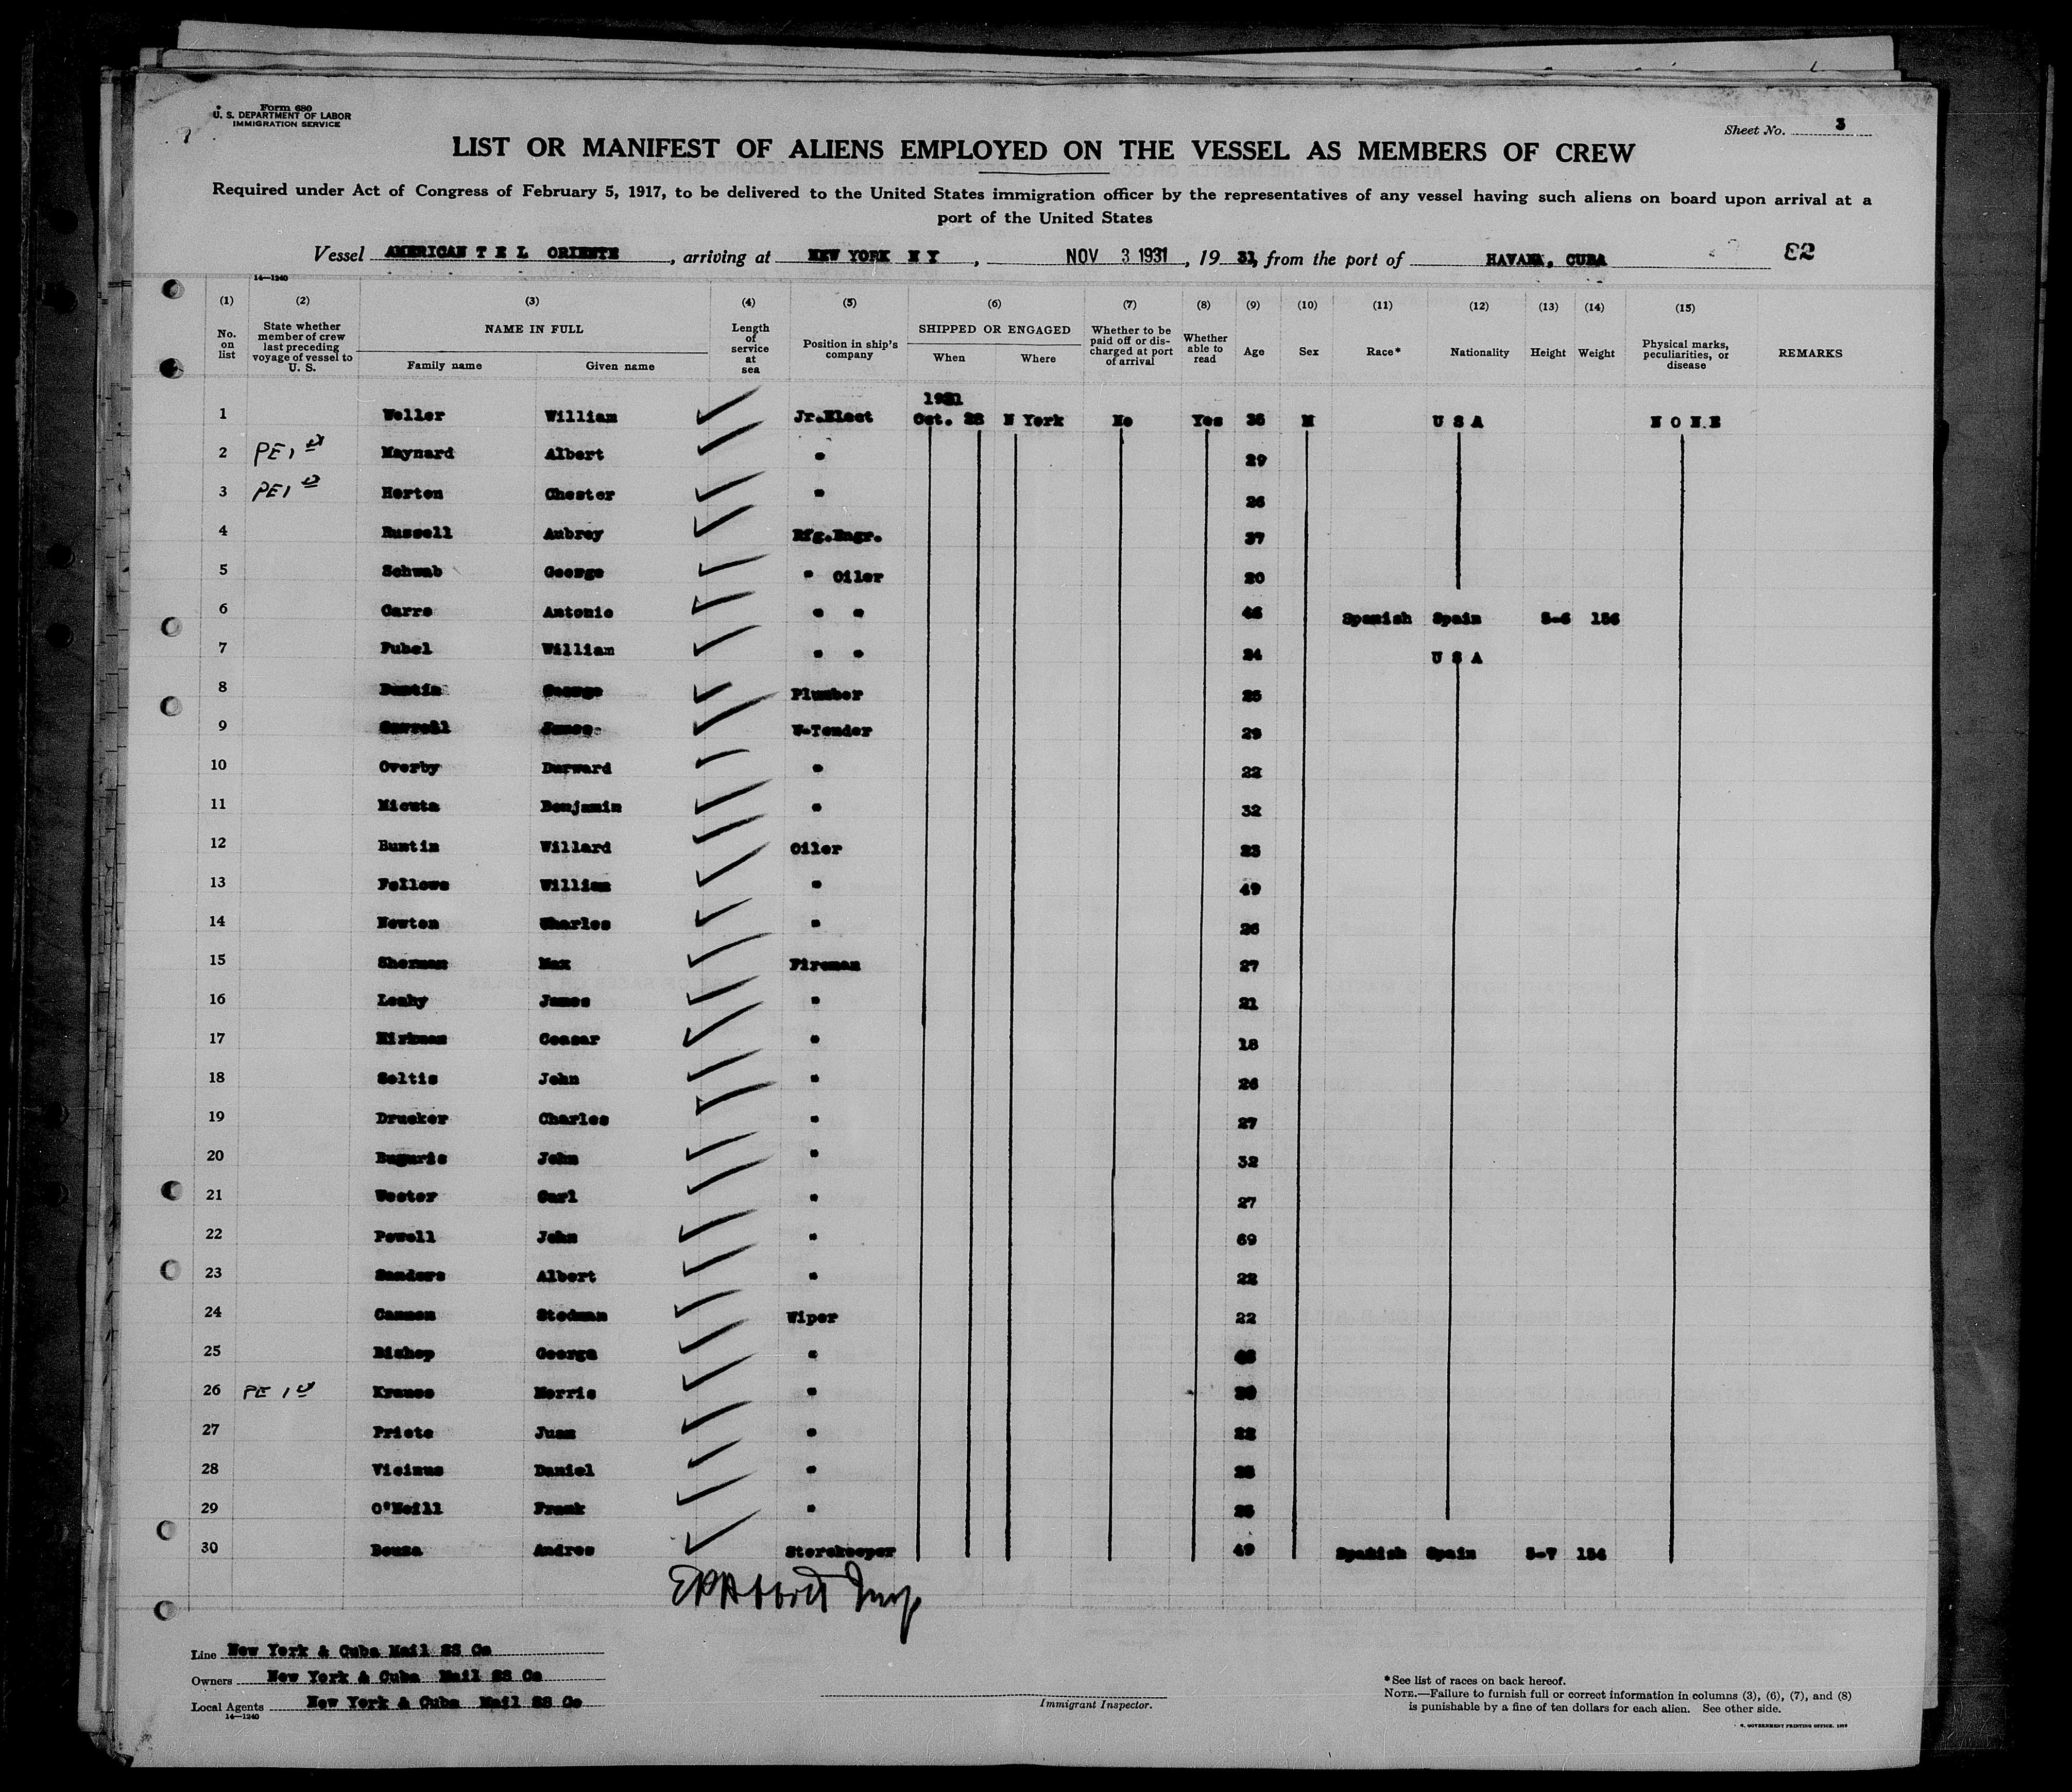 Form 680
U. S. DEPARTMENT OF LABOR
IMMIGRATION SERVICE
Sheet No. 3
LIST OR MANIFEST OF ALIENS EMPLOYED ON THE VESSEL AS MEMBERS OF CREW
Required under Act of Congress of February 5, 1917, to be delivered to the United States immigration officer by the representatives of any vessel having such aliens on board upon arrival at a
port of the United States
Vessel AMERICAN T E L ORIENTE, arriving at NEW YORK N Y, NOV 3 1931, 19 31, from the port of HAVANA, CUBA 82
14—1240
(1) (2) (3) (4) (5) (6) (7) (8) (9) (10) (11) (12) (13) (14) (15)
No. on list State whether member of crew last preceding voyage of vessel to U. S. NAME IN FULL Family name Given name Length of service at sea Position in ship's company SHIPPED OR ENGAGED When Where Whether to be paid off or discharged at port of arrival Whether able to read Age Sex Race* Nationality Height Weight Physical marks, peculiarities, or disease REMARKS
1931
1 Weller William Jr.Elect Oct. 28 N York No Yes 36 M U S A N O N E
2 PE1 Maynard Albert " 29
3 PE1 Horton Chester " 26
4 Russell Aubrey Rfg.Engr. 37
5 Schwab George " Oiler 20
6 Carro Antonio " " 46 Spanish Spain 5-6 156
7 Fubel William " " 24 U S A
8 George Plumber 25
9 James W-Tender 29
10 Overby Durward " 22
11 Micuta Benjamin " 32
12 Buntin Willard Oiler 23
13 Fellows William " 49
14 Newton Charles " 26
15 Sherman Max Fireman 27
16 Leahy James " 21
17 Kirkman Ceasar " 18
18 Soltis John " 26
19 Drucker Charles " 27
20 John " 32
21 Wester Carl " 27
22 Powell John " 69
23 Sanders Albert " 22
24 Cannon Stedman Wiper 22
25 Bishop George "
26 PE 1 Krause Morris "
27 Prieto Juan " 22
28 Vicinus Daniel "
29 O'Neill Frank "
30 Bouza Andres Storekeeper 49 Spanish Spain 5-7 154
Line New York & Cuba Mail SS Co
Owners New York & Cuba Mail SS Co
Local Agents New York & Cuba Mail SS Co
14—1240
Immigrant Inspector.
*See list of races on back hereof.
NOTE.—Failure to furnish full or correct information in columns (3), (6), (7), and (8)
is punishable by a fine of ten dollars for each alien. See other side.